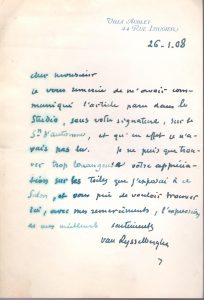 VILLA AUBLET
44 RUE LAUGIER
26-1.08
cher monsieur
je vous remercie de m'avoir com-
muniqué l'article paru dans le
Studio, sous votre signature, sur le
Sn d'automne, et qu'en effet je n'a-
vais pas lu. Je ne puis que trou-
ver trop louangeuse votre apprécia-
sion sur les toiles que j'exposai à ce
Salon, et vous prie de vouloir trouver
ici, avec mes remerciements, l'expression
de mes meilleurs sentiments
van Rysselberghe